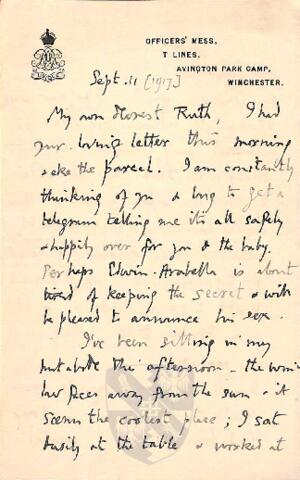 OFFICERS' MESS,
T LINES,
AVINGTON PARK CAMP,
WINCHESTER.
Sept. 11 [1917]
My own dearest Ruth, I had
your loving letter this morning
& eke the parcel. I am constantly
thinking of you & long to get a
telegram telling me it's all safely
& happily over for you & the baby.
Perhaps Edwin-Arabella is about
tired of keeping the secret & will
be pleased to announce his sex.
I've been sitting in my
hut all the afternoon – the
low faces away from the sun & it
seems the coolest place; I sat
busily at the table & worked at